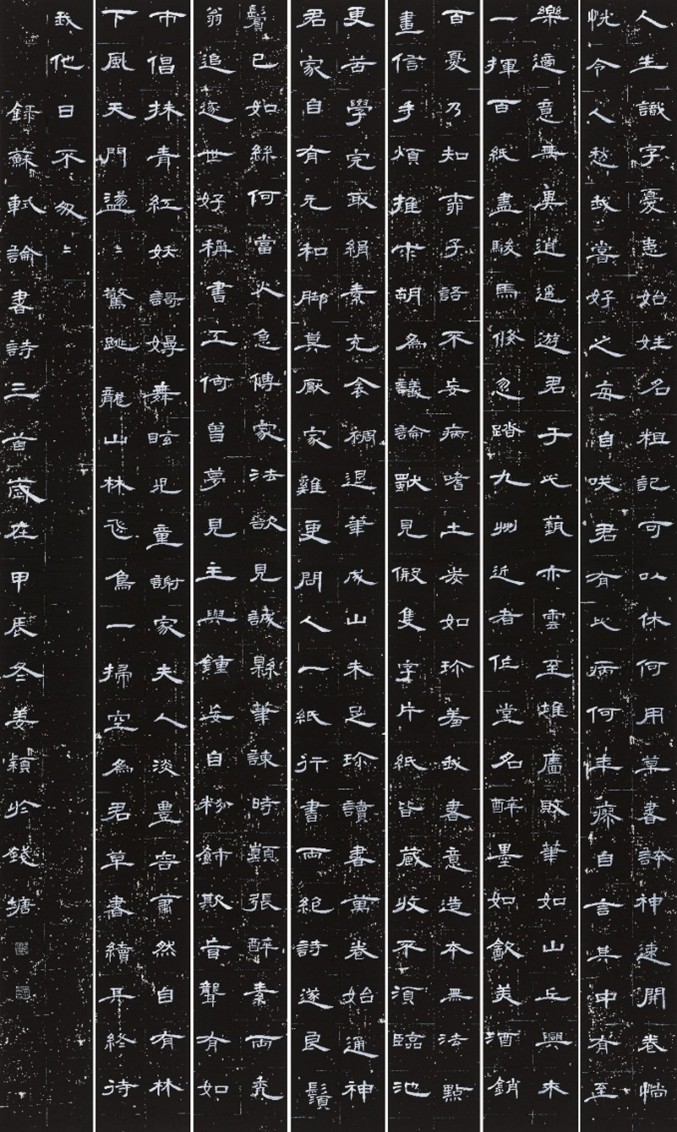 人生識字憂患始姓名粗記可以休何用草書誇神速開卷惝
怳令人愁我嘗好之每自笑君有此病何年瘳自言其中有至
樂適意無異逍遙遊君于此藝亦雲至堆廬敗筆如山丘興來
一揮百紙盡駿馬倏忽踏九州近者作堂名醉墨如飲美酒銷
百憂乃知柳子語不妄病嗜土炭如珍羞我書意造本無法點
畫信手煩推求胡為議論獨見假隻字片紙皆藏收不須臨池
更苦學完取絹素充衾裯退筆成山未足珍讀書萬卷始通神
君家自有元和脚莫厭家雞更問人一紙行書兩絕詩遂良鬚
鬢已如絲何當火急傳家法欲見誠懸筆諫時顛張醉素兩禿
翁追逐世好稱書工何曾夢見王與鍾妄自粉飾欺盲聾有如
市倡抹青紅妖謌嫚舞眩兒童謝家夫人淡豊容蕭然自有林
下風天門蕩〻驚跳龍山林飛鳥一掃空為君草書續其終待
我他日不匆〻
録蘇軾論書詩三首歲在甲辰冬姜穎於錢塘